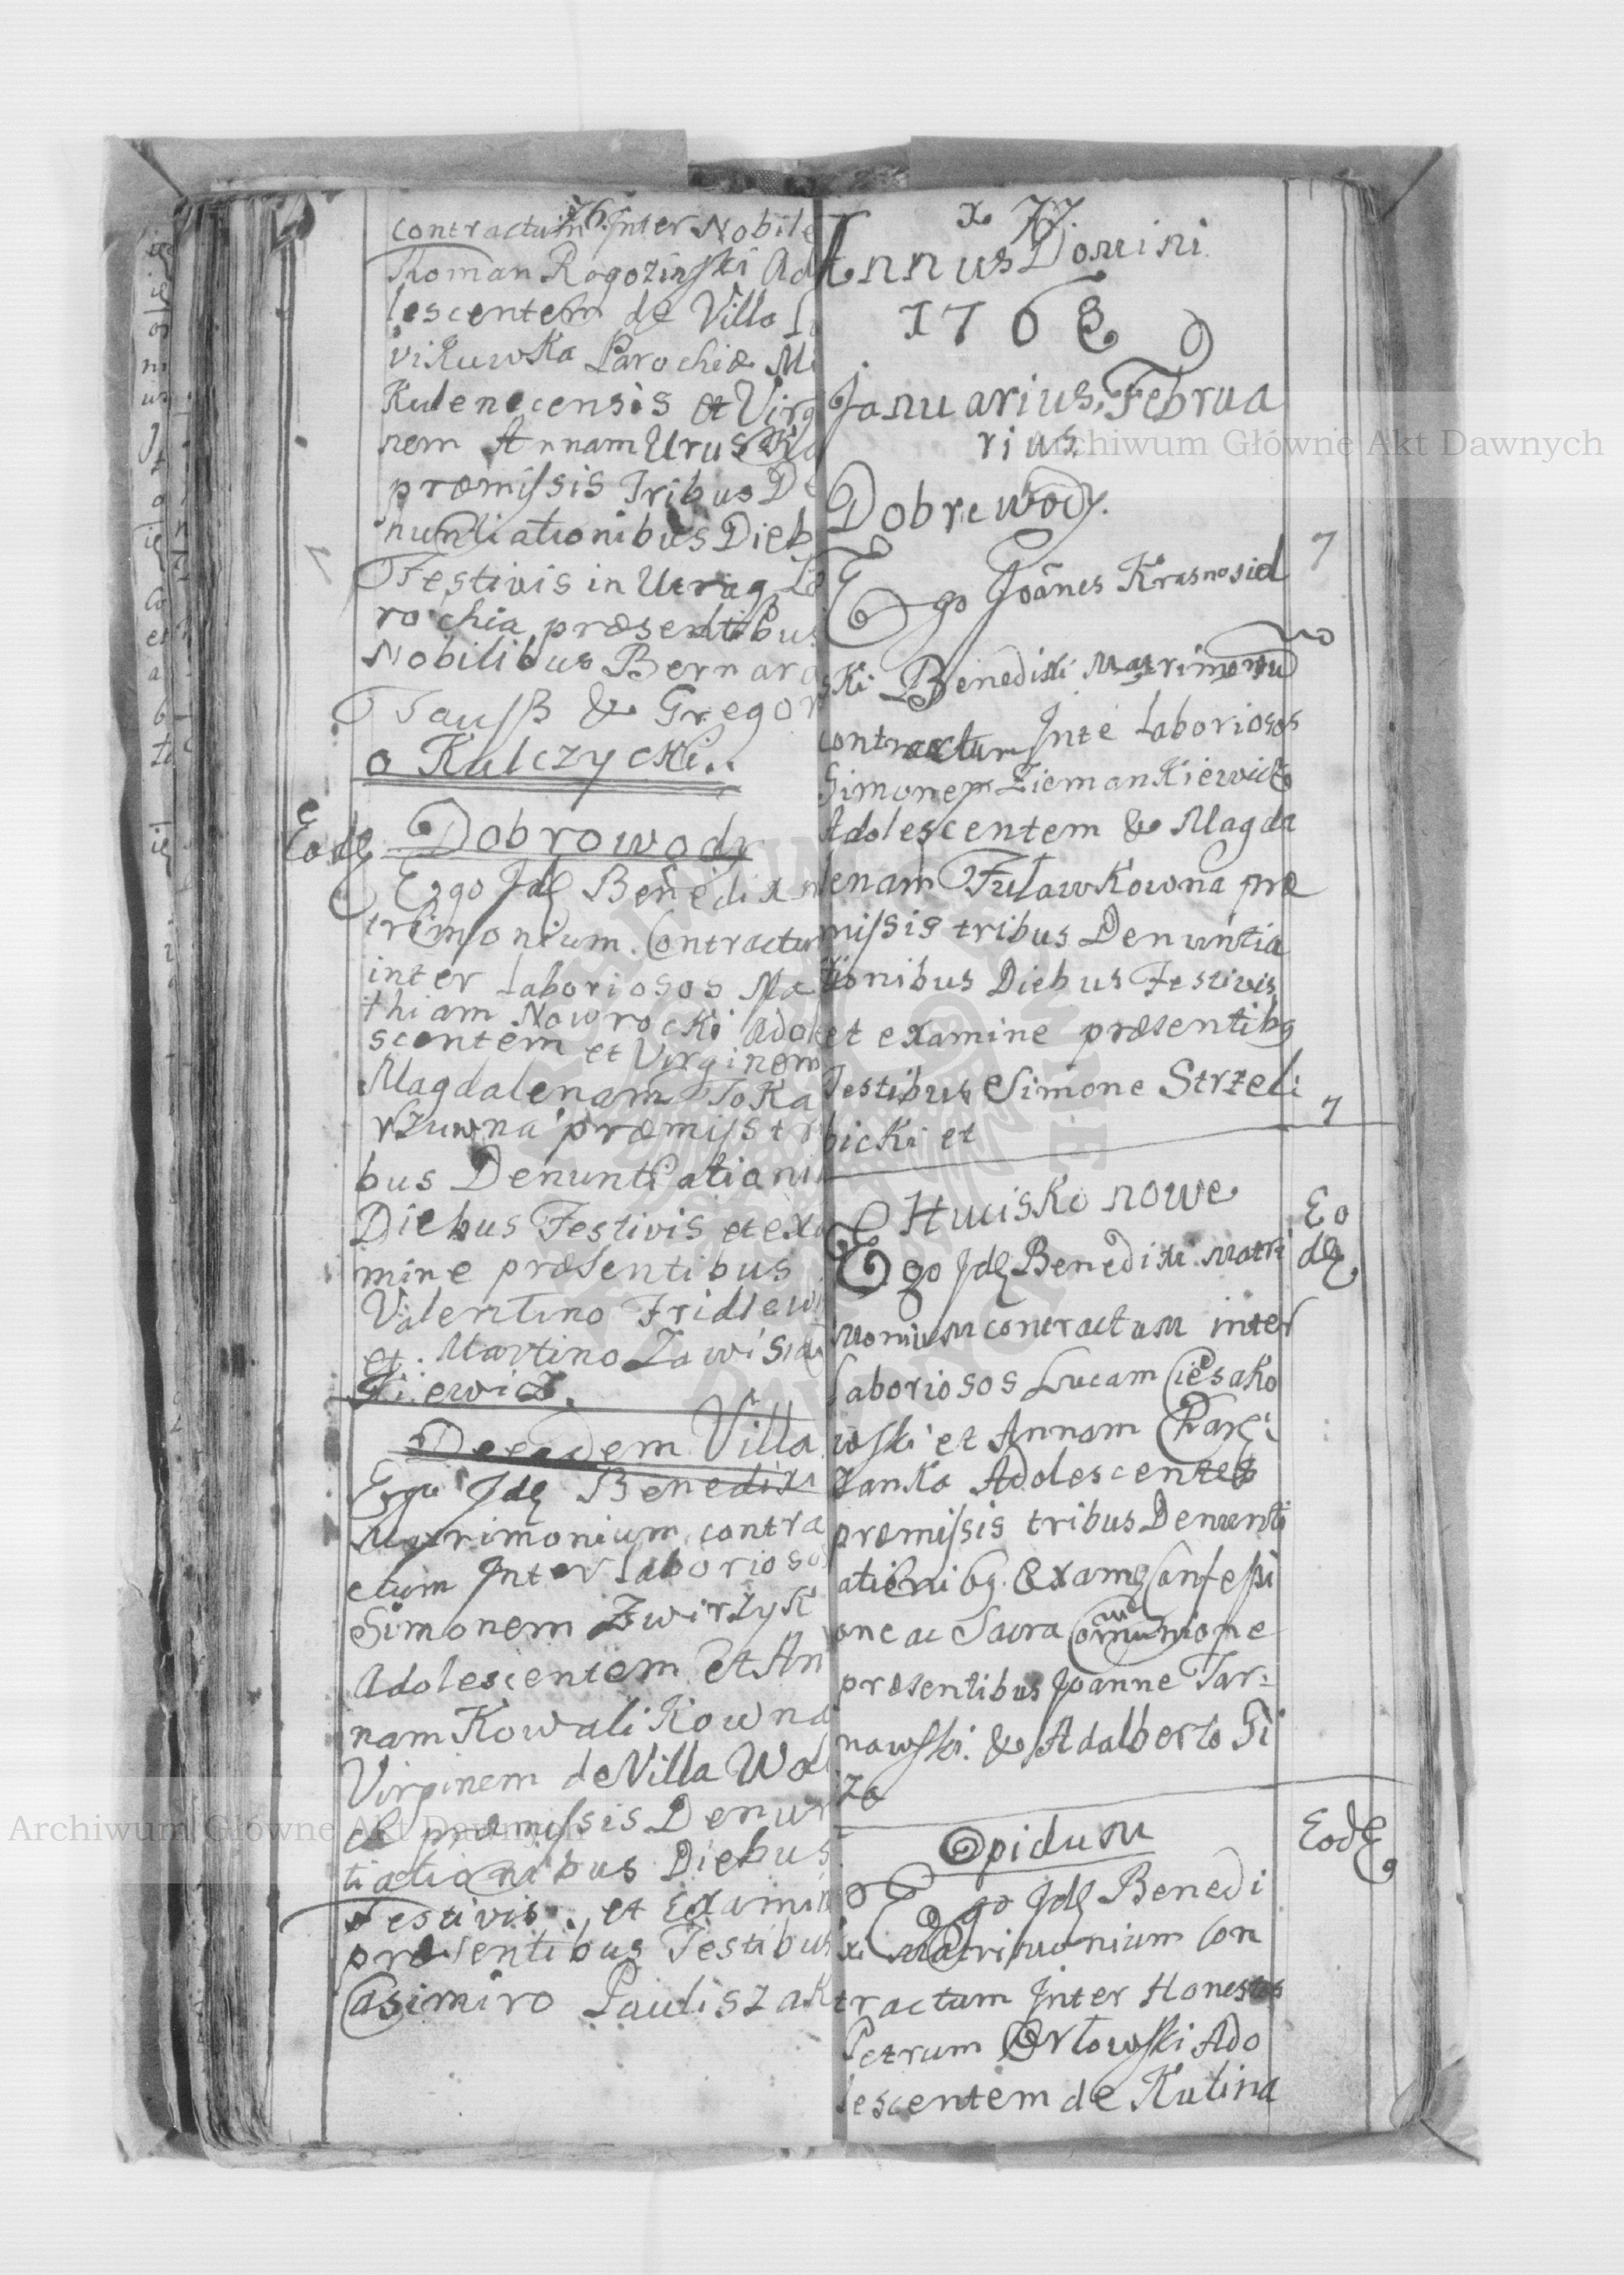 76.
contractum Inter Nobile
Thoman Rogozinski Ad
lescentem de Villa
vikuwka Parochiæ Mi
kulenecensis et Virg
nem Annam Urus
præmissis Tribus De
nuntiationibus Dieb
Festivis in Utraq
rochia præsentibus
Nobilibus Bernar
Tauss & Gregor
o Kulczycki.
Eodē Dobrowody
Ego Idē Benedix
trimonium Contractum
inter Laboriosos Ma
thiam Nawrocki Adole
scentem et Virginem
Magdalenam Toka
rżuwna præmiss tri
bus Denuntiationi
Diebus Festivis et exa
mine præsentibus
Valentino Fridlew
et Martino Zawis
kiewicz.
De eadem Villa
Ego Idē Benedixi
Matrimonium contra
ctum Inter Laborioso
Simonem Zwirzyk
Adolescentem et An
nam Kowalikowna
Virginem de Villa Wo
præmissis Denun
tiationibus Diebus
Festivis et Examin
præsentibus Testibus
Casimiro Pauliszak
77
Annus Domini
1768
Januarius, Februa
rius
Dobrewody.
Ego Joānes Krasnosiel 7
ski Benedixi Matrimoniū
contractum Inte Laboriosos
Simonem Ziemankiewicz
Adolescentem & Magda
lenam Fuławkowna præ
missis tribus Denuntia
tionibus Diebus Festivis
et examine præsentibq
Testibus Simone Strzeli
bicki et 7
Hucisko nowe Eo
Ego Idē Benedixi Matri dē
monium contractum inter
Laboriosos Lucam Ciesako
wski et Annam
zanka Adolescentes
præmissis tribus Denunti
ationibq. Examē Confessi
one ac Sacra Communione
præsentibus Joanne Tar-
nawski. & Adalberto Gi
za
Opidum Eodē
Ego Idē Benedi
xi Matrimonium Con
tractum Inter Honestos
Petrum Orłowski Ado
lescentem de Kulina
Archiwum Główne Akt Dawnych
Archiwum Główne Akt Dawnych